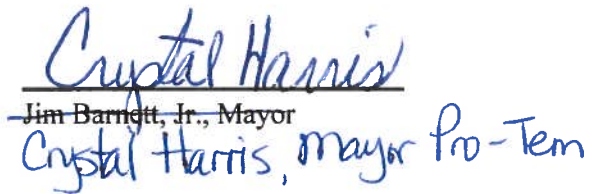 Crystal Harris
Jim Barnett, Jr., Mayor
Crystal Harris, Mayor Pro-Tem